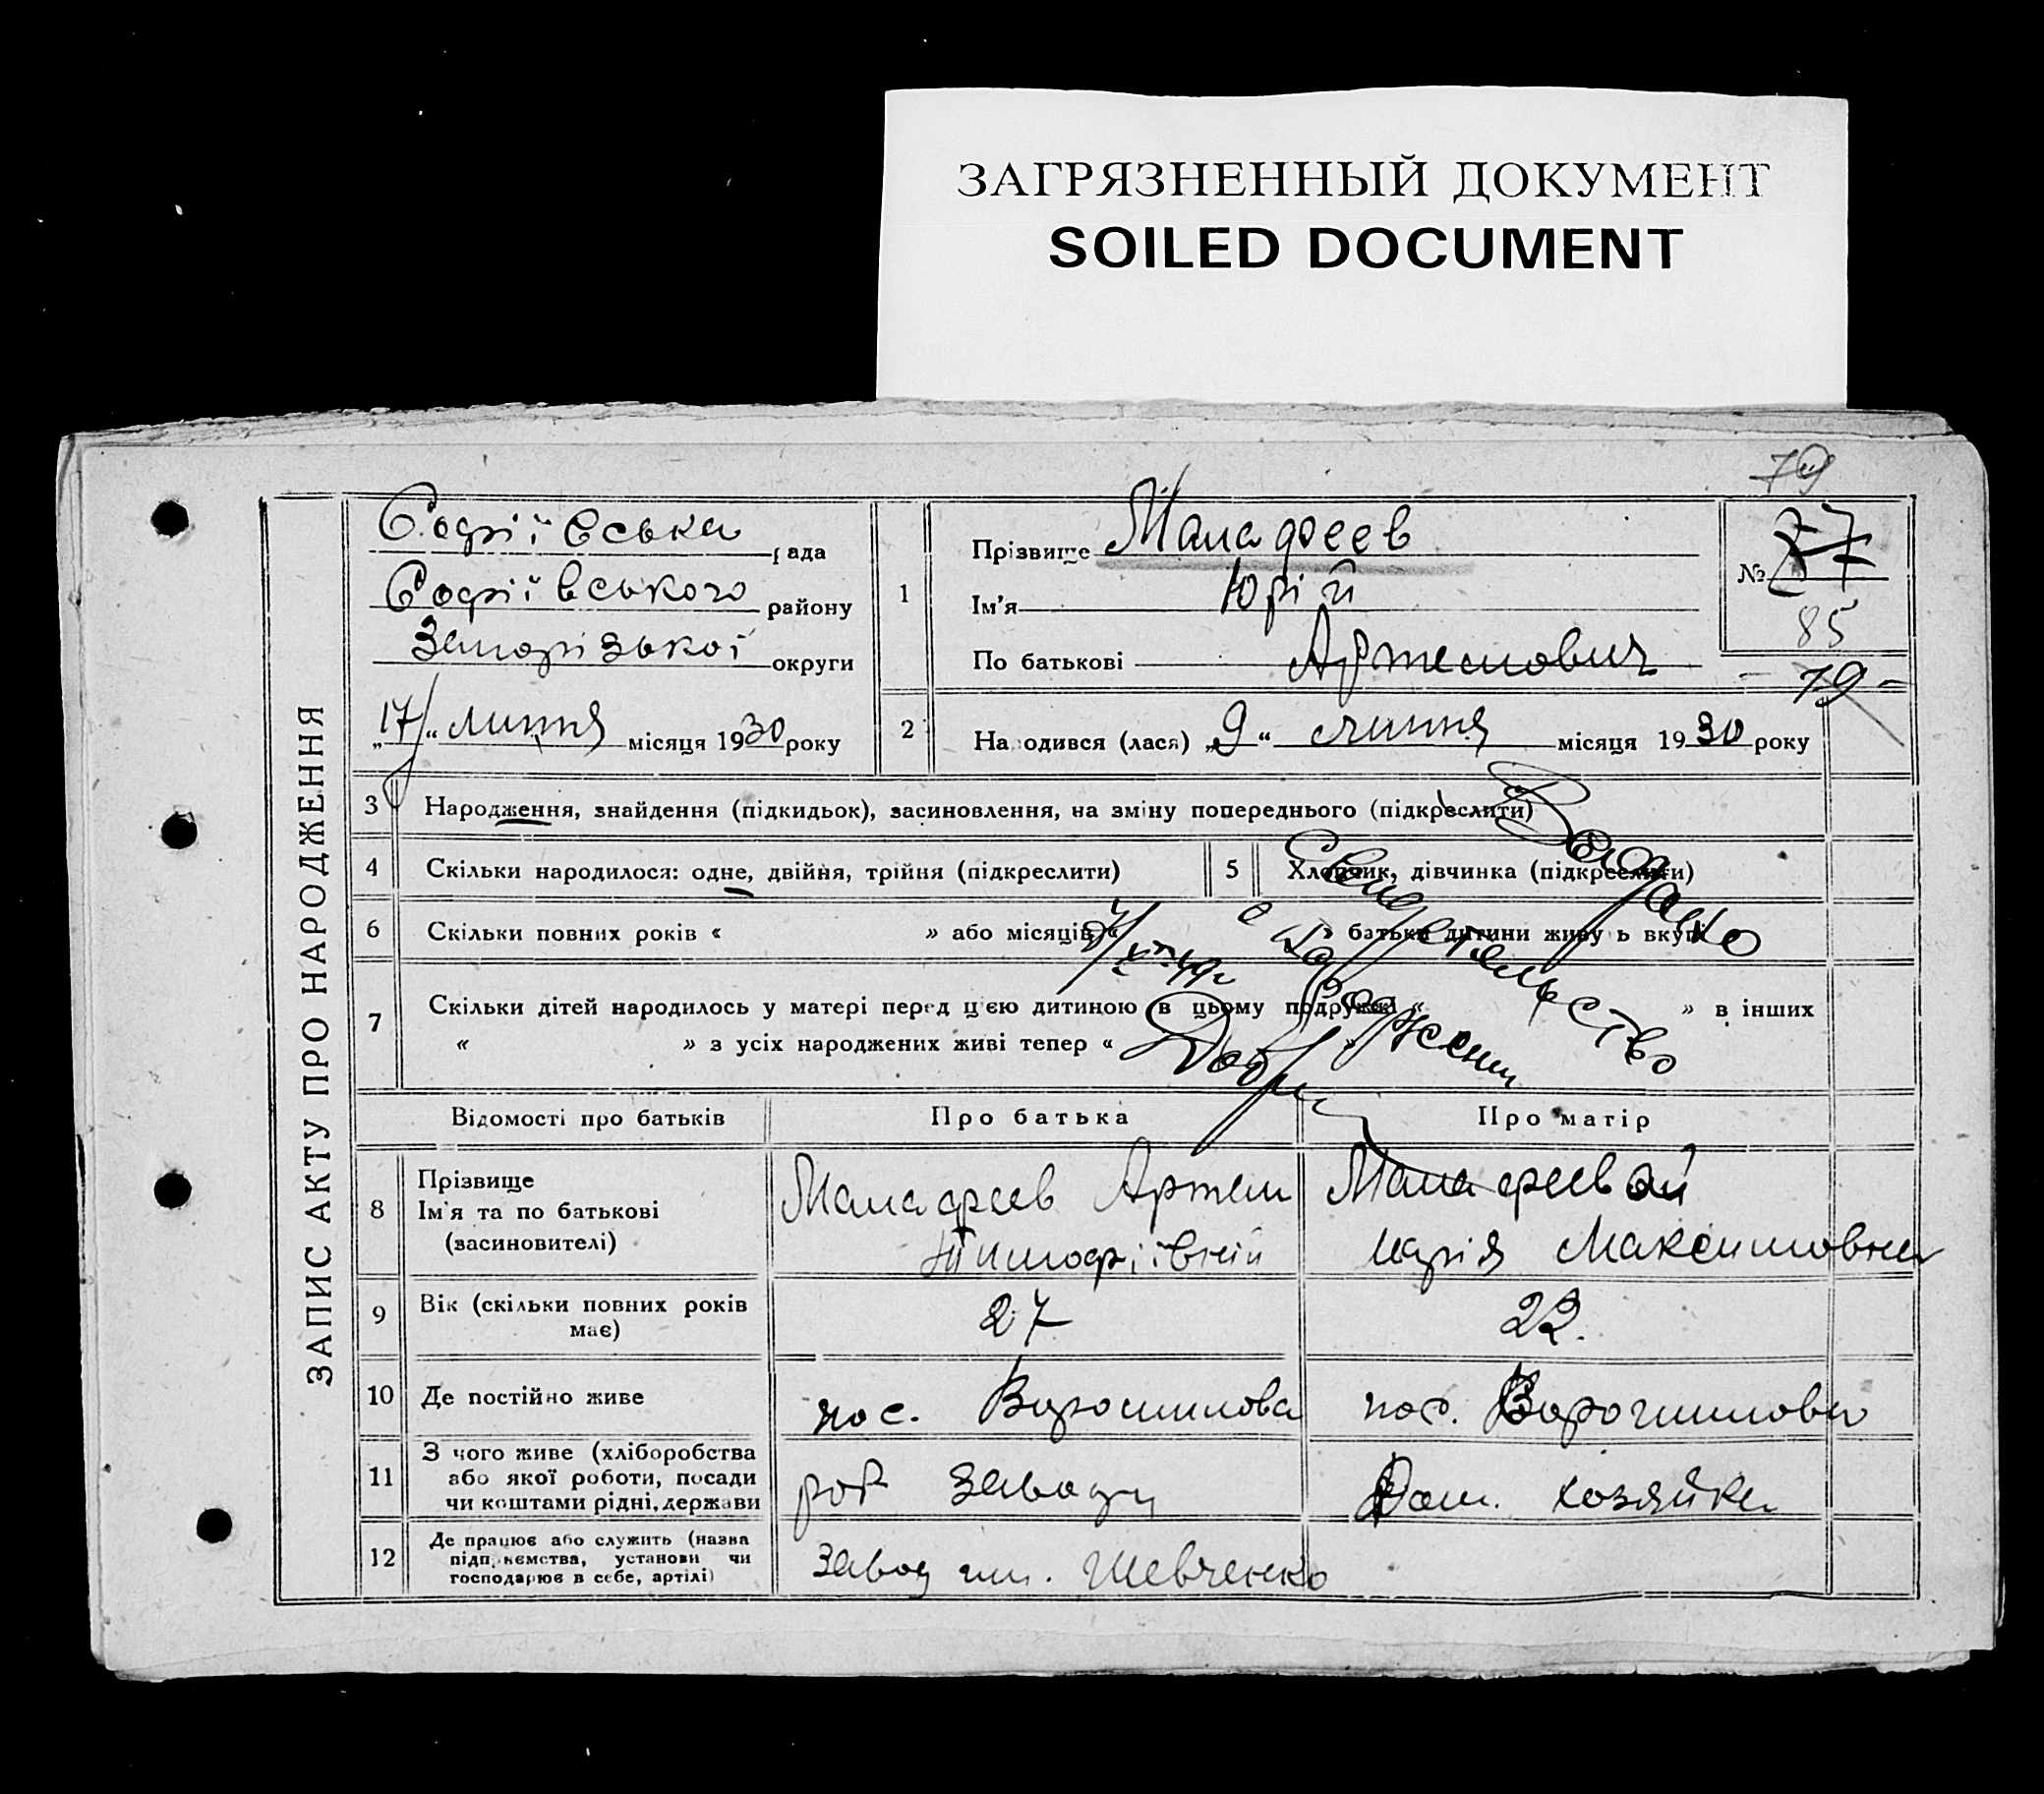 ЗАГРЯЗНЕННЫЙ ДОКУМЕНТ
SOILED DOCUMENT
79
ЗАПИС АКТУ ПРО НАРОДЖЕННЯ
Софіївська рада
Софіївського району
Запорізької округи
„17“ липня місяця 1930 року
1
Прізвище Малафеев
Ім'я Юрій
По батькові Артемович
№ 87
85
79
2
Народився (лася) „9“ липня місяця 1930 року
3 Народження, знайдення (підкидьок), засиновлення, на зміну попереднього (підкреслити)
4 Скільки народилося: одне, двійня, трійня (підкреслити)
5 Хлопчик, дівчинка (підкреслити)
6 Скільки повних років « » або місяців « » батьки дитини живуть вкупі
7 Скільки дітей народилось у матері перед цією дитиною в цьому подружжі « » в інших
« » з усіх народжених живі тепер « »
Свидетельство
о рождении
Відомості про батьків
Про батька
Про матір
8 Прізвище
Ім'я та по батькові
(засиновителі)
Малафеев Артем
Тимофіївній
Малафеевой
Марія Максимовна
9 Вік (скільки повних років
має)
27
22.
10 Де постійно живе
пос. Ворошилова
пос. Ворошилова
11 З чого живе (хліборобства
або якої роботи, посади
чи коштами рідні, держави
роб завода
Дом. хозяйка
12 Де працює або служить (назва
підприємства, установи чи
господарює в себе, артілі)
Завод им. Шевченко